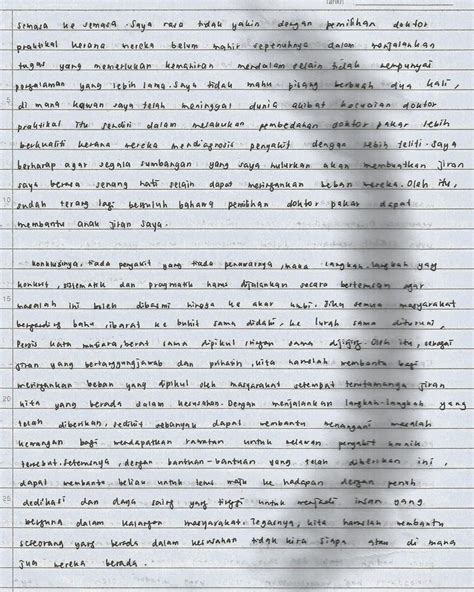 semasa ke semasa. Saya rasa tidak yakin dengan pemilihan doktor
praktikal kerana mereka belum mahir sepenuhnya dalam menjalankan
tugas yang memerlukan kemahiran mendalam selain tidak mempunyai
pengalaman yang lebih lama. Saya tidak mahu pisang berbuah dua kali,
5 di mana kawan saya telah meninggal dunia akibat kecuaian doktor
praktikal itu sendiri dalam melakukan pembedahan doktor pakar lebih
berkualiti kerana mereka mendiagnosis penyakit dengan lebih teliti. Saya
berharap agar segala sumbangan yang saya hulurkan akan membuatkan jiran
saya berasa senang hati selain dapat meringankan beban mereka. Oleh itu,
10 sudah terang lagi bersuluh bahawa pemilihan doktor pakar dapat
membantu anak jiran saya.
Konklusinya, tiada penyakit yang tiada penawarnya, maka langkah-langkah yang
konkrit, sistematik dan pragmatik harus dijalankan secara berterusan agar
15 masalah ini boleh dibasmi hingga ke akar umbi. Jika semua masyarakat
berganding bahu, ibarat ke bukit sama didaki, ke lurah sama dituruni,
persis kata mutiara, berat sama dipikul ringan sama dijinjing. Oleh itu, sebagai
jiran yang bertanggungjawab dan prihatin, kita haruslah membantu bagi
meringankan beban yang dipikul oleh masyarakat setempat terutamanya jiran
20 kita yang berada dalam kesusahan. Dengan menjalankan langkah-langkah yang
telah diberikan, sedikit sebanyak dapat membantu menangani masalah
kewangan bagi mendapatkan rawatan untuk melawan penyakit kronik
tersebut. Seterusnya, dengan bantuan-bantuan yang telah diberikan ini,
dapat membantu beliau untuk terus maju ke hadapan dengan penuh
25 dedikasi dan daya saing yang tinggi untuk menjadi insan yang
berguna dalam kalangan masyarakat. Tegasnya, kita haruslah membantu
seseorang yang berada dalam kesusahan tidak kira siapa atau di mana
jua mereka berada.